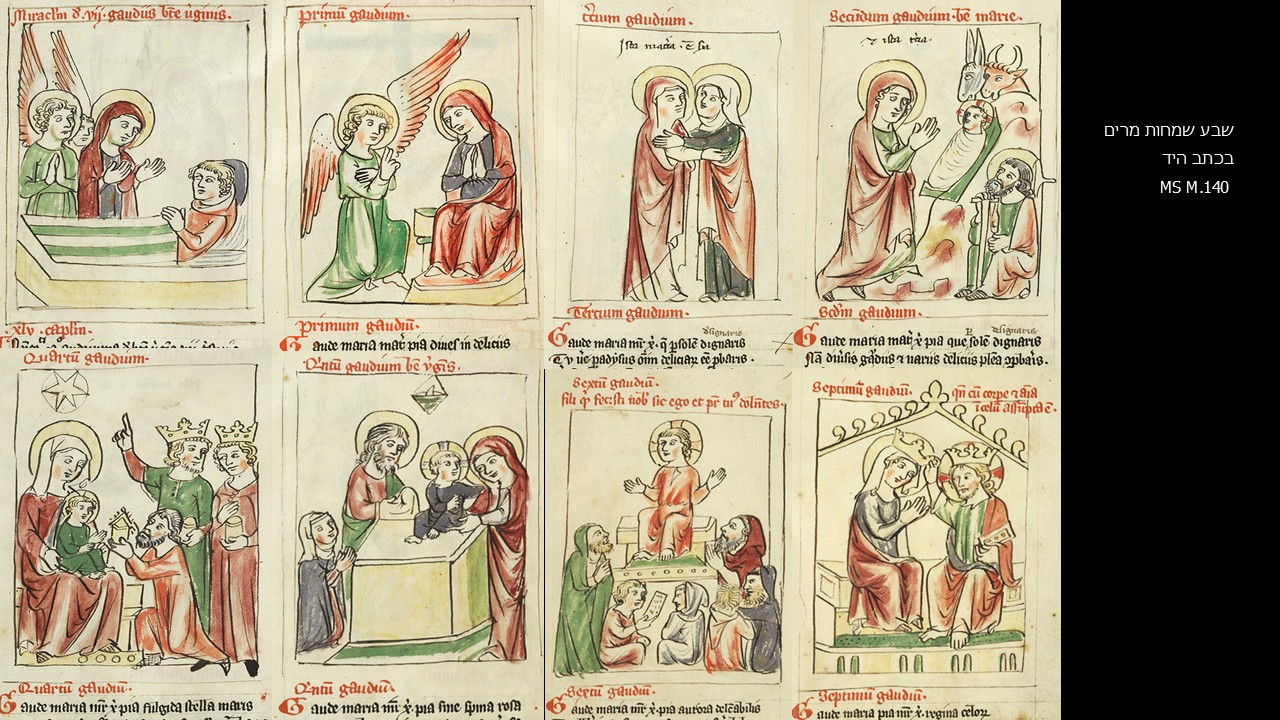 Miraclm d. vij. gaudiis bte uginis.
Primū gaudium.
tcium gaudium.
Ista
Secundum gaudium. be marie.
xlv. caplm.
Primum gaudiū.
Gaude maria mat pia dives in deliciis
Tercium gaudium.
dsignaris
Gaude maria mr x. q psole dignaris
Scdm gaudium.
dsignaris
Gaude maria mat x pia que sole dignaris
Quartū gaudium.
Qntū gaudium be ygis.
Sextū gaudiū.
fili qr fecisti nob sic ego et pr tu dolntes.
Septimū gaudiū. qn cū corpe & aīa
Quartū gaudiū.
Gaude maria mr x pia fulgida stella maris
Qntū gaudiū.
Gaude maria mr x pia sine spina rosa
Sextū gaudiū.
Gaude maria mr x. pia aurora delcabilis
Septimū gaudiū.
Gaude maria pia mr x. regina celor
שבע שמחות מרים
בכתב היד
MS M.140